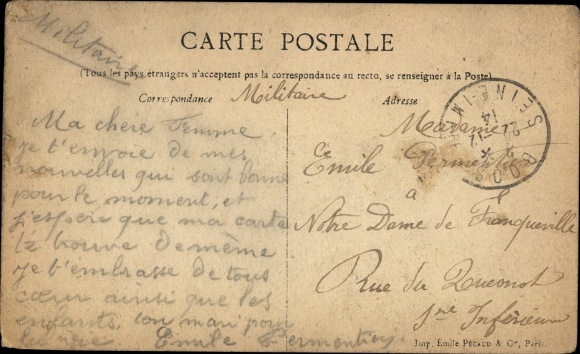 Militaire
CARTE POSTALE
(Tous les pays étrangers n'acceptent pas la correspondance au recto, se renseigner à la Poste)
Correspondance
Militaire
Adresse
Ma chère Femme
je t'envoie de mes
nouvelles qui sont bonne
pour le moment, et
j'espère que ma carte
te trouve de même
Je t'embrasse de tous
cœur ainsi que les
enfants. ton mari pour
la vie Emile Fermentier
Madame
Emile
à
Notre Dame de Franqueville
Rue du
Sne Inférieure
SEINE INF
22 - 12
14
Imp. Émile PÉCAUD & Cie, Paris.